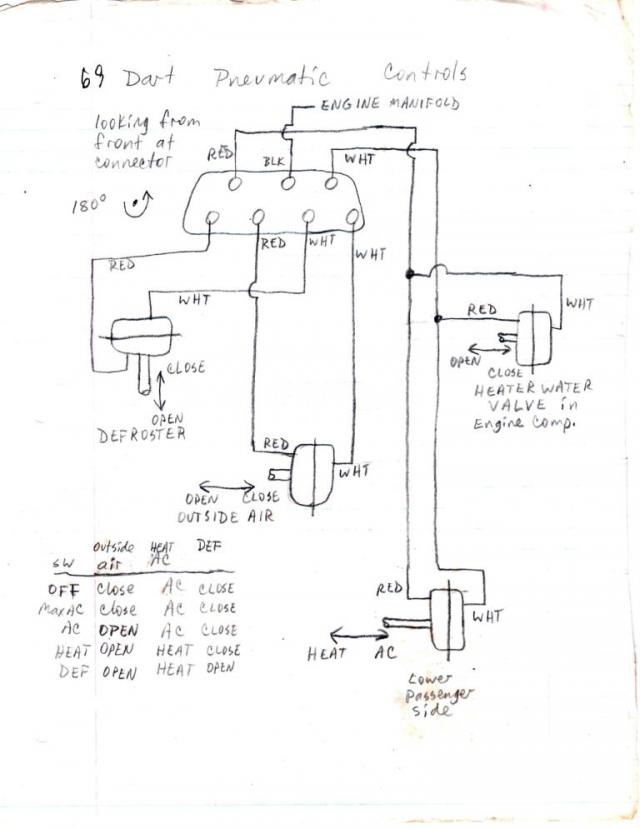 69 Dart Pneumatic Controls
ENGINE MANIFOLD
looking from
front at
connector
RED
BLK
WHT
180°
RED
WHT
WHT
RED
WHT
WHT
RED
CLOSE
OPEN
CLOSE
OPEN
DEFROSTER
HEATER WATER
VALVE in
Engine Comp.
RED
WHT
OPEN CLOSE
OUTSIDE AIR
outside HEAT DEF
SW air AC
OFF close AC CLOSE
MaxAC close AC CLOSE
AC OPEN AC CLOSE
HEAT OPEN HEAT CLOSE
DEF OPEN HEAT OPEN
RED
WHT
HEAT AC
Lower
passenger
side